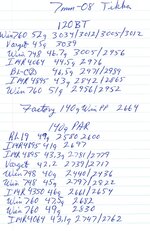 7mm-08 Tikka
120BT
Win760 52g 3034/3012/3005/3012
Varget 45g 3039
Win 748 46.7g 3005/2956
IMR4064 44.5g 2976
BL-C(2) 46.5g 2979/2989
IMR4895 43g 2842/2865
Win 760 51g 2956/2952
Factory 140g Win PP 2664
140g PAR
RL19 49g 2580 2600
IMR4895 41g 2697
IMR4895 43.3g 2781/2779
Varget 42.2 2739/2717
Win 748 40g 2440/2436
Win 748 45g 2797/2822
IMR4350 46g 2661/2654
Win 760 47.5g 2682
Win 760 49g 2830
IMR4064 43.1g 2747/2762